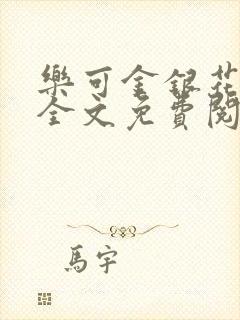 樂可金銀花
全文免費閱
馬宇